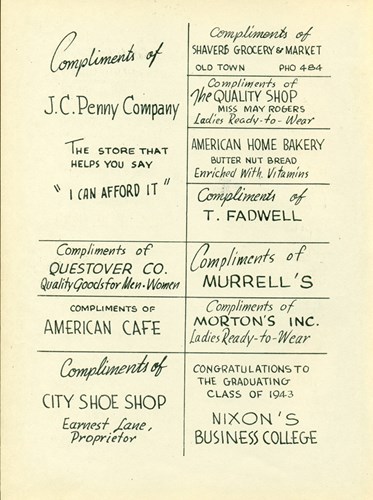 Compliments of
J.C. Penny Company
THE STORE THAT
HELPS YOU SAY
"I CAN AFFORD IT"
Compliments of
QUESTOVER CO.
Quality Goods for Men-Women
COMPLIMENTS OF
AMERICAN CAFE
Compliments of
CITY SHOE SHOP
Earnest Lane,
Proprietor
Compliments of
SHAVERS GROCERY & MARKET
OLD TOWN PHO 484
Compliments of
The QUALITY SHOP
MISS MAY ROGERS
Ladies Ready-to-Wear
AMERICAN HOME BAKERY
BUTTER NUT BREAD
Enriched With Vitamins
Compliments of
T. FADWELL
Compliments of
MURRELL'S
Compliments of
MORTON'S INC.
Ladies Ready-to-Wear
CONGRATULATIONS TO
THE GRADUATING
CLASS OF 1943
NIXON'S
BUSINESS COLLEGE